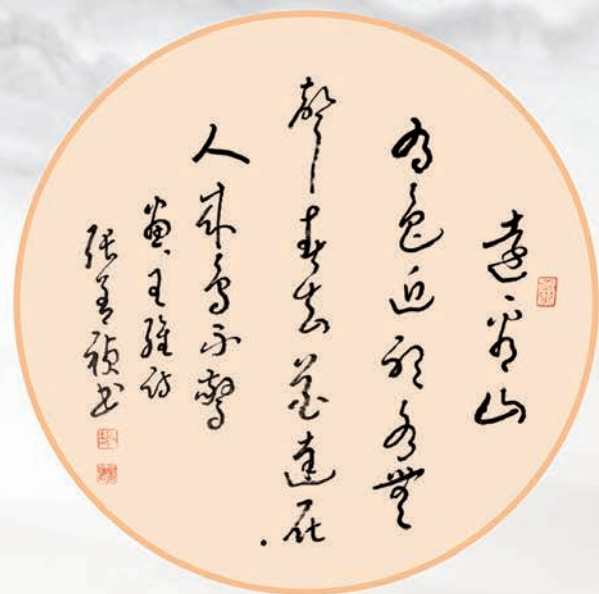 遠看山
有色近聽水無
聲春去花還在
人來鳥不驚
畫王維詩
張善禎書